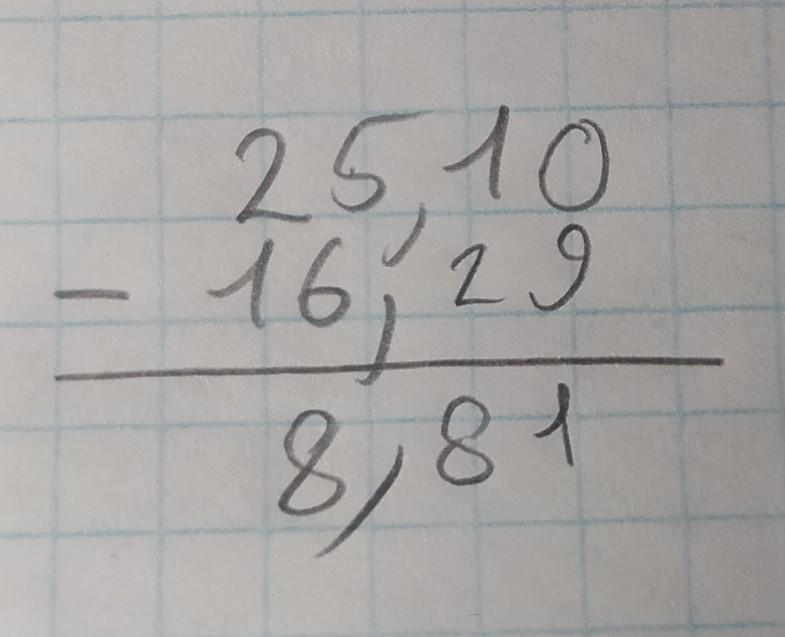 25,10
- 16,29
8,81